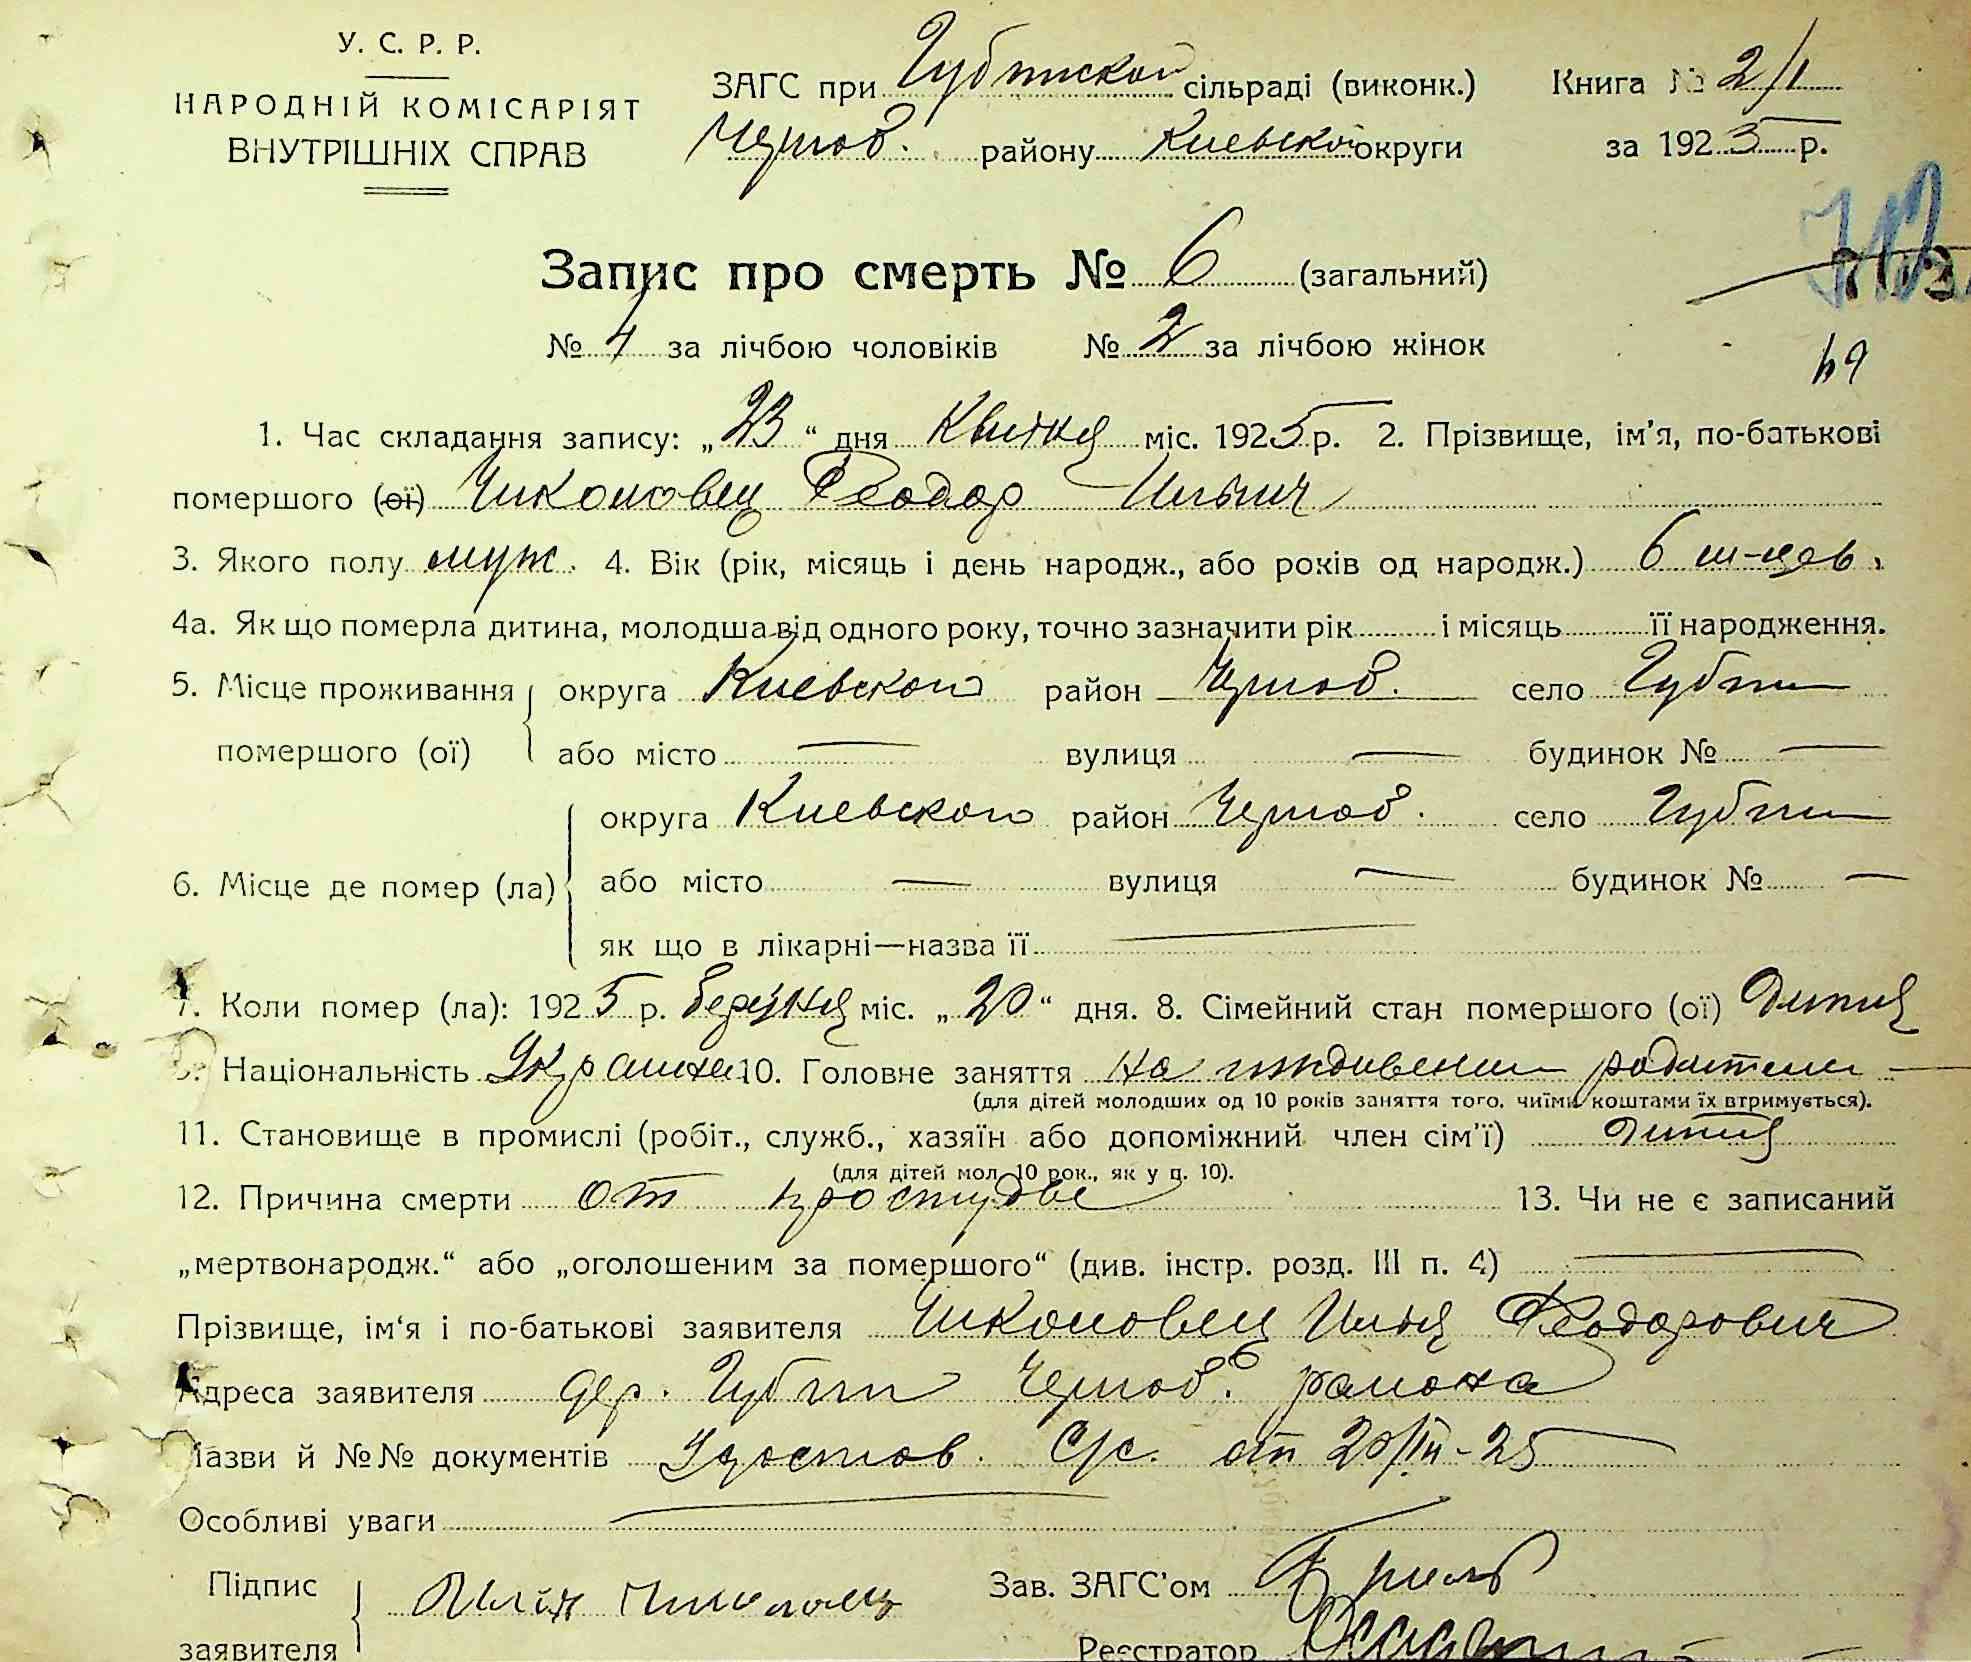 У. С. Р. Р.
НАРОДНІЙ КОМІСАРІЯТ
ВНУТРІШНІХ СПРАВ
ЗАГС при Губинской сільраді (виконк.) Книга № 2/1
Чернов. району Киевской округи за 1925 р.
Запис про смерть № 6 (загальний)
№ 4 за лічбою чоловіків № 2 за лічбою жінок
49
1. Час складання запису: „23“ дня Квитня міс. 1925 р. 2. Прізвище, ім'я, по-батькові
помершого (ої) Чиконовец Феодор Ильич
3. Якого полу муж. 4. Вік (рік, місяць і день народж., або років од народж.) 6 м-цев.
4а. Як що померла дитина, молодша від одного року, точно зазначити рік і місяць її народження.
5. Місце проживання округа Киевского район Чернов. село Губин
помершого (ої) або місто — вулиця — будинок № —
округа Киевского район Чернов. село Губин
6. Місце де помер (ла) або місто — вулиця — будинок № —
як що в лікарні—назва її —
7. Коли помер (ла): 1925 р. березня міс. „20“ дня. 8. Сімейний стан помершого (ої) дитя
9. Національність Украинец 10. Головне заняття на иждивении родителей
(для дітей молодших од 10 років заняття того, чиїми коштами їх втримується).
11. Становище в промислі (робіт., служб., хазяїн або допоміжний член сім'ї) дитя
(для дітей мол. 10 рок., як у п. 10).
12. Причина смерти от простуды 13. Чи не є записаний
„мертвонародж.“ або „оголошеним за помершого“ (див. інстр. розд. III п. 4) —
Прізвище, ім'я і по-батькові заявителя Чиконовец Илья Феодорович
Адреса заявителя дер. Губин Чернов. района
Назви й №№ документів Удостов. С/с. от 20/III-25
Особливі уваги —
Підпис Зав. ЗАГС'ом
заявителя Реєстратор